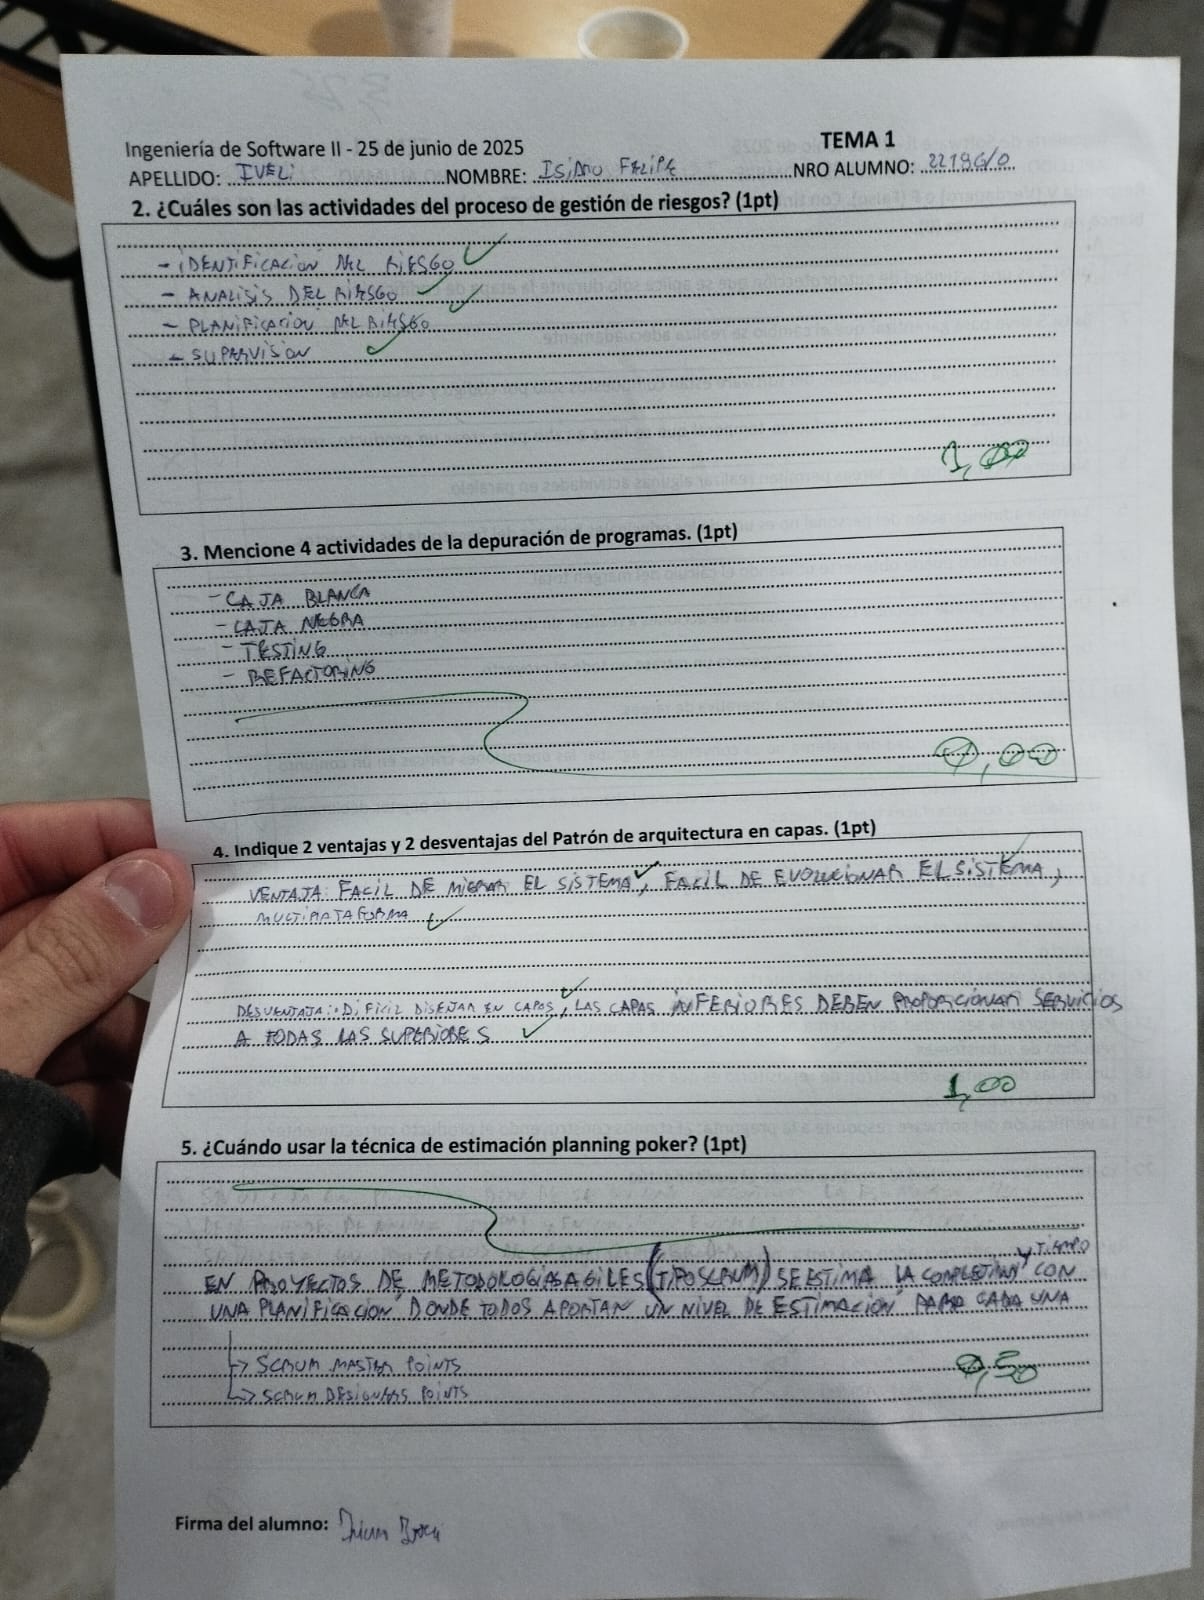 Ingeniería de Software II - 25 de junio de 2025
TEMA 1
APELLIDO: IVELI NOMBRE: ISIDRO FELIPE NRO ALUMNO: 22196/0
2. ¿Cuáles son las actividades del proceso de gestión de riesgos? (1pt)
- IDENTIFICACION DEL RIESGO
- ANALISIS DEL RIESGO
- PLANIFICACION DEL RIESGO
- SUPERVISION
1,00
3. Mencione 4 actividades de la depuración de programas. (1pt)
- CAJA BLANCA
- CAJA NEGRA
- TESTING
- REFACTORING
0,00
4. Indique 2 ventajas y 2 desventajas del Patrón de arquitectura en capas. (1pt)
VENTAJA: FACIL DE MIGRAR EL SISTEMA, FACIL DE EVOLUCIONAR EL SISTEMA,
MULTIPLATAFORMA
DESVENTAJA: DIFICIL DISEÑAR EN CAPAS, LAS CAPAS INFERIORES DEBEN PROPORCIONAR SERVICIOS
A TODAS LAS SUPERIORES
1,00
5. ¿Cuándo usar la técnica de estimación planning poker? (1pt)
Y TIEMPO
EN PROYECTOS DE METODOLOGIAS AGILES (TIPO SCRUM) SE ESTIMA LA CON
UNA PLANIFICACION, DONDE TODOS APORTAN UN NIVEL DE ESTIMACION PARA CADA UNA
→ SCRUM MASTER POINTS
→ SCRUM POINTS
0,50
Firma del alumno: